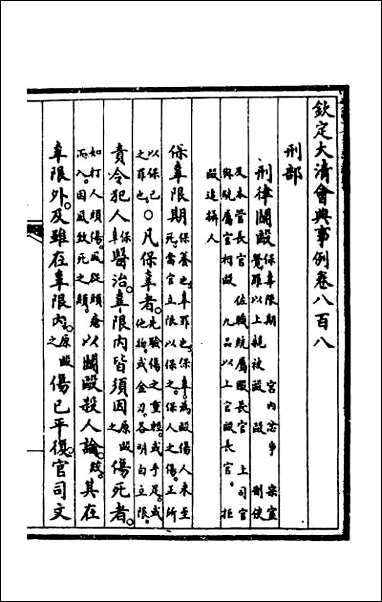 欽定大清會典事例卷八百八
刑部
刑律鬬毆 保辜限期 宮內忿爭 宗室
覺羅以上親被毆 毆 制使
及本管長官 佐職統屬毆長官 上司官
與統屬官相毆 九品以上官毆長官。 拒
毆追攝人
保辜限期 保養也。辜罪也。保辜。為毆傷人未至
死。當官立限以保之。保人之傷。正所
以保己之罪也。○凡保辜者。先驗傷之重輕。或手足。或
他物。或金刃。各明白立限。
責令犯人保辜醫治。辜限內皆須因原毆之傷死者。
如打人頭傷。風從頭瘡
而入。因風致死之類。以鬬毆殺人論。絞。其在
辜限外。及雖在辜限內。原毆之傷已平復。官司文